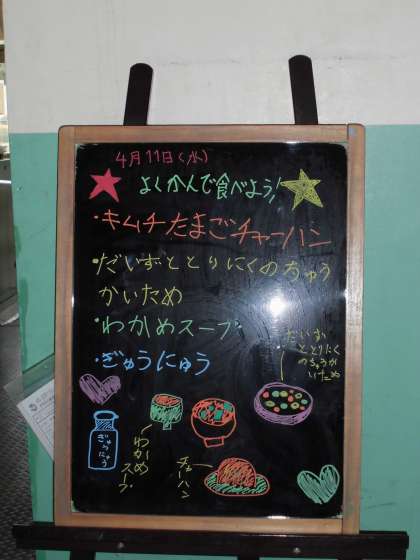 4月11日(水)
よくかんで食べよう!
・キムチたまごチャーハン
・だいずととりにくのちゅう
かいため
・わかめスープ
・ぎゅうにゅう
だいず
ととりにく
のちゅうか
いため
ぎゅうにゅう
わかめ
スープ
チャーハン